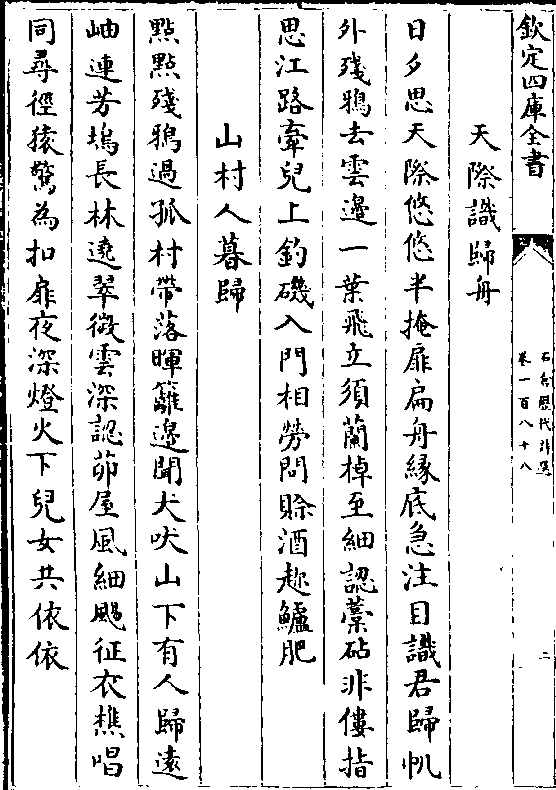 欽定四庫全書
石倉歷代詩選
卷一百八十八
二
天際識歸舟
日夕思天際悠悠半掩扉扁舟緣底急注目識君歸帆
外殘鴉去雲邊一葉飛立須蘭棹至細認藁砧非僂指
思江路牽兒上釣磯入門相勞問賒酒趂鱸肥
山村人暮歸
點點殘鴉過孤村帶落暉籬邊聞犬吠山下有人歸遠
岫連芳塢長林遶翠微雲深認茆屋風細颺征衣樵唱
同尋徑猿驚為扣扉夜深燈火下兒女共依依